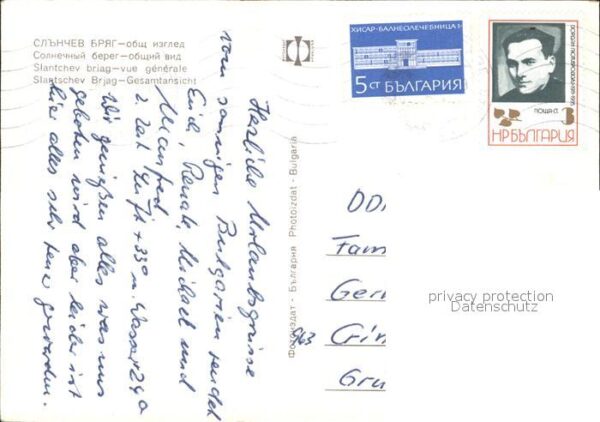 СЛЪНЧЕВ БРЯГ—общ изглед
Солнечный берег—общий вид
Slantchev briag—vue générale
Slantschev Brjag—Gesamtansicht
ХИСАР-БАЛНЕОЛЕЧЕБНИЦА
5 СТ БЪЛГАРИЯ
ПОЩА СТ. 3
НР БЪЛГАРИЯ
Фотоиздат - България Photoizdat - Bulgaria
Herzliche Urlaubsgrüsse
vom sonnigen Bulgarien sendet
Euch, Renate, Michael und
Manfred
z. Zt. Luft +33° u. Wasser 24°
Wir genießen alles was uns
geboten wird aber leider ist
hier alles sehr teuer geworden.
DD
Fam
Ger
963 Crim
Gru
privacy protection
Datenschutz